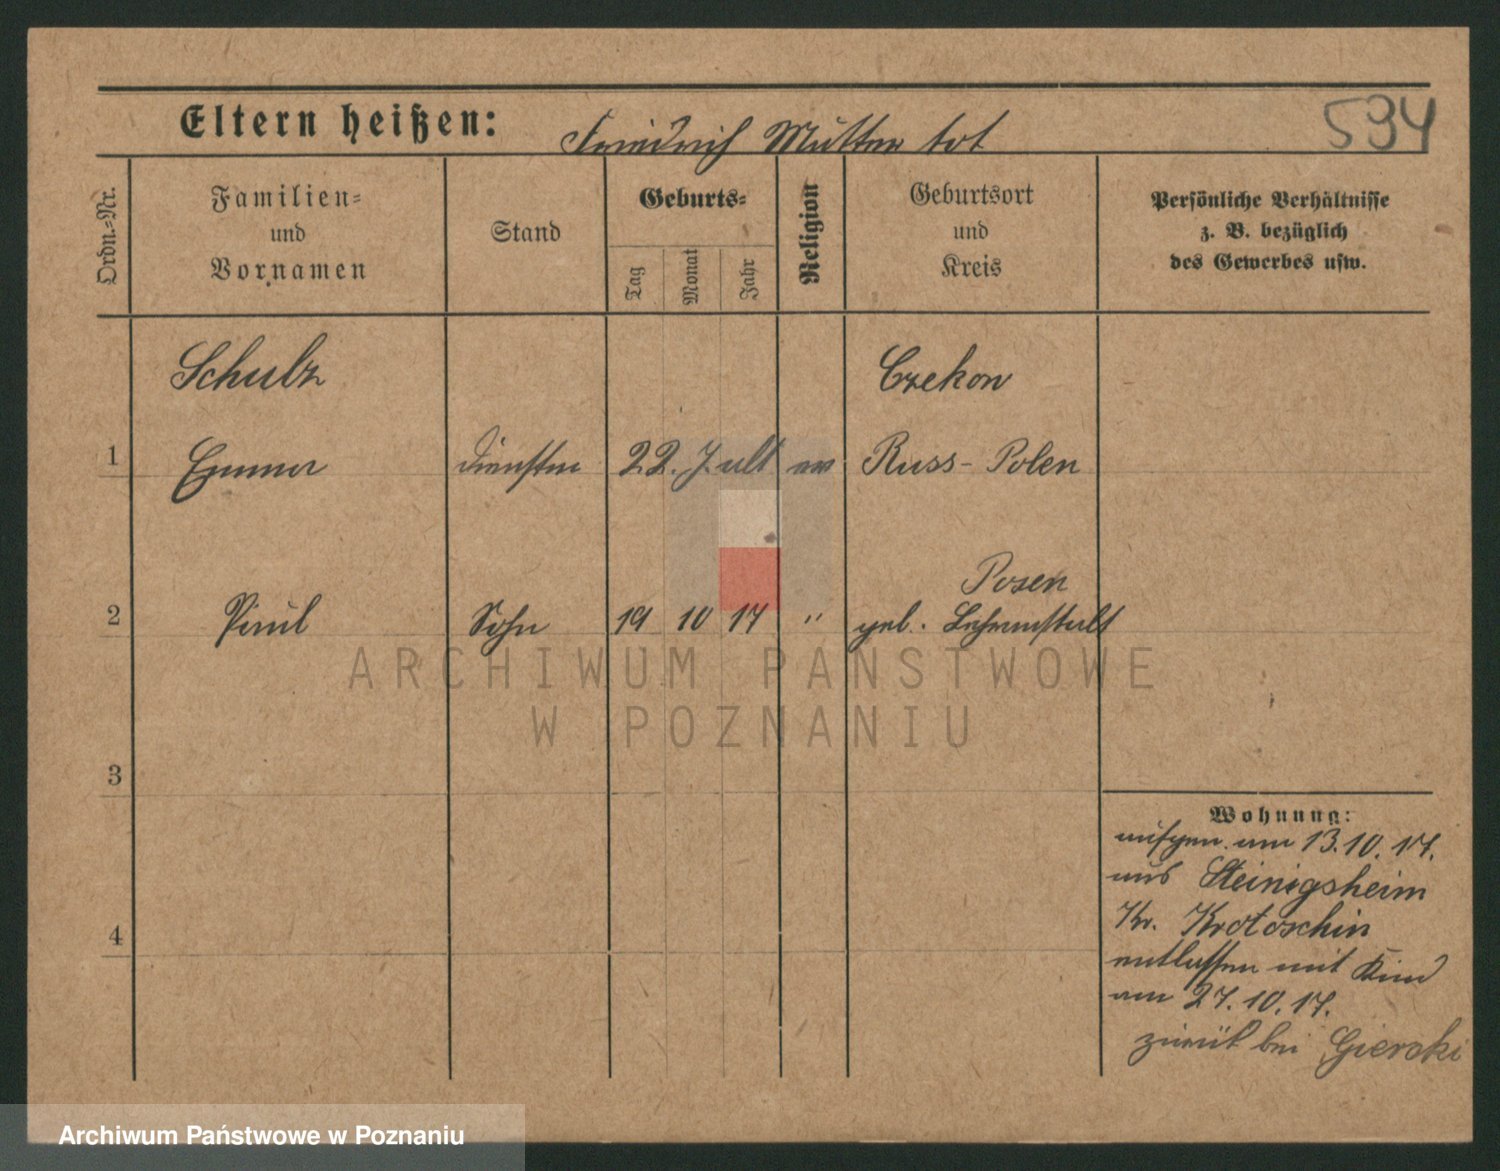 Eltern heißen: Friedrich Mutter tot
594
Ordn.=Nr.
Familien=
und
Vornamen
Stand
Geburts=
Tag
Monat
Jahr
Religion
Geburtsort
und
Kreis
Persönliche Verhältnisse
z. B. bezüglich
des Gewerbes usw.
Schulz
Czekow
1 Emma dienstm 22. J. alt ev Russ- Polen
Posen
2 Paul Sohn 19 10 17 " geb. Hebeanstalt
ARCHIWUM PAŃSTWOWE
W POZNANIU
3
4
Wohnung:
aufgen. am 13.10.17.
aus Steinigsheim
Kr. Krotoschin
entlassen mit Kind
am 27.10.17.
zurük bei Gierski
Archiwum Państwowe w Poznaniu